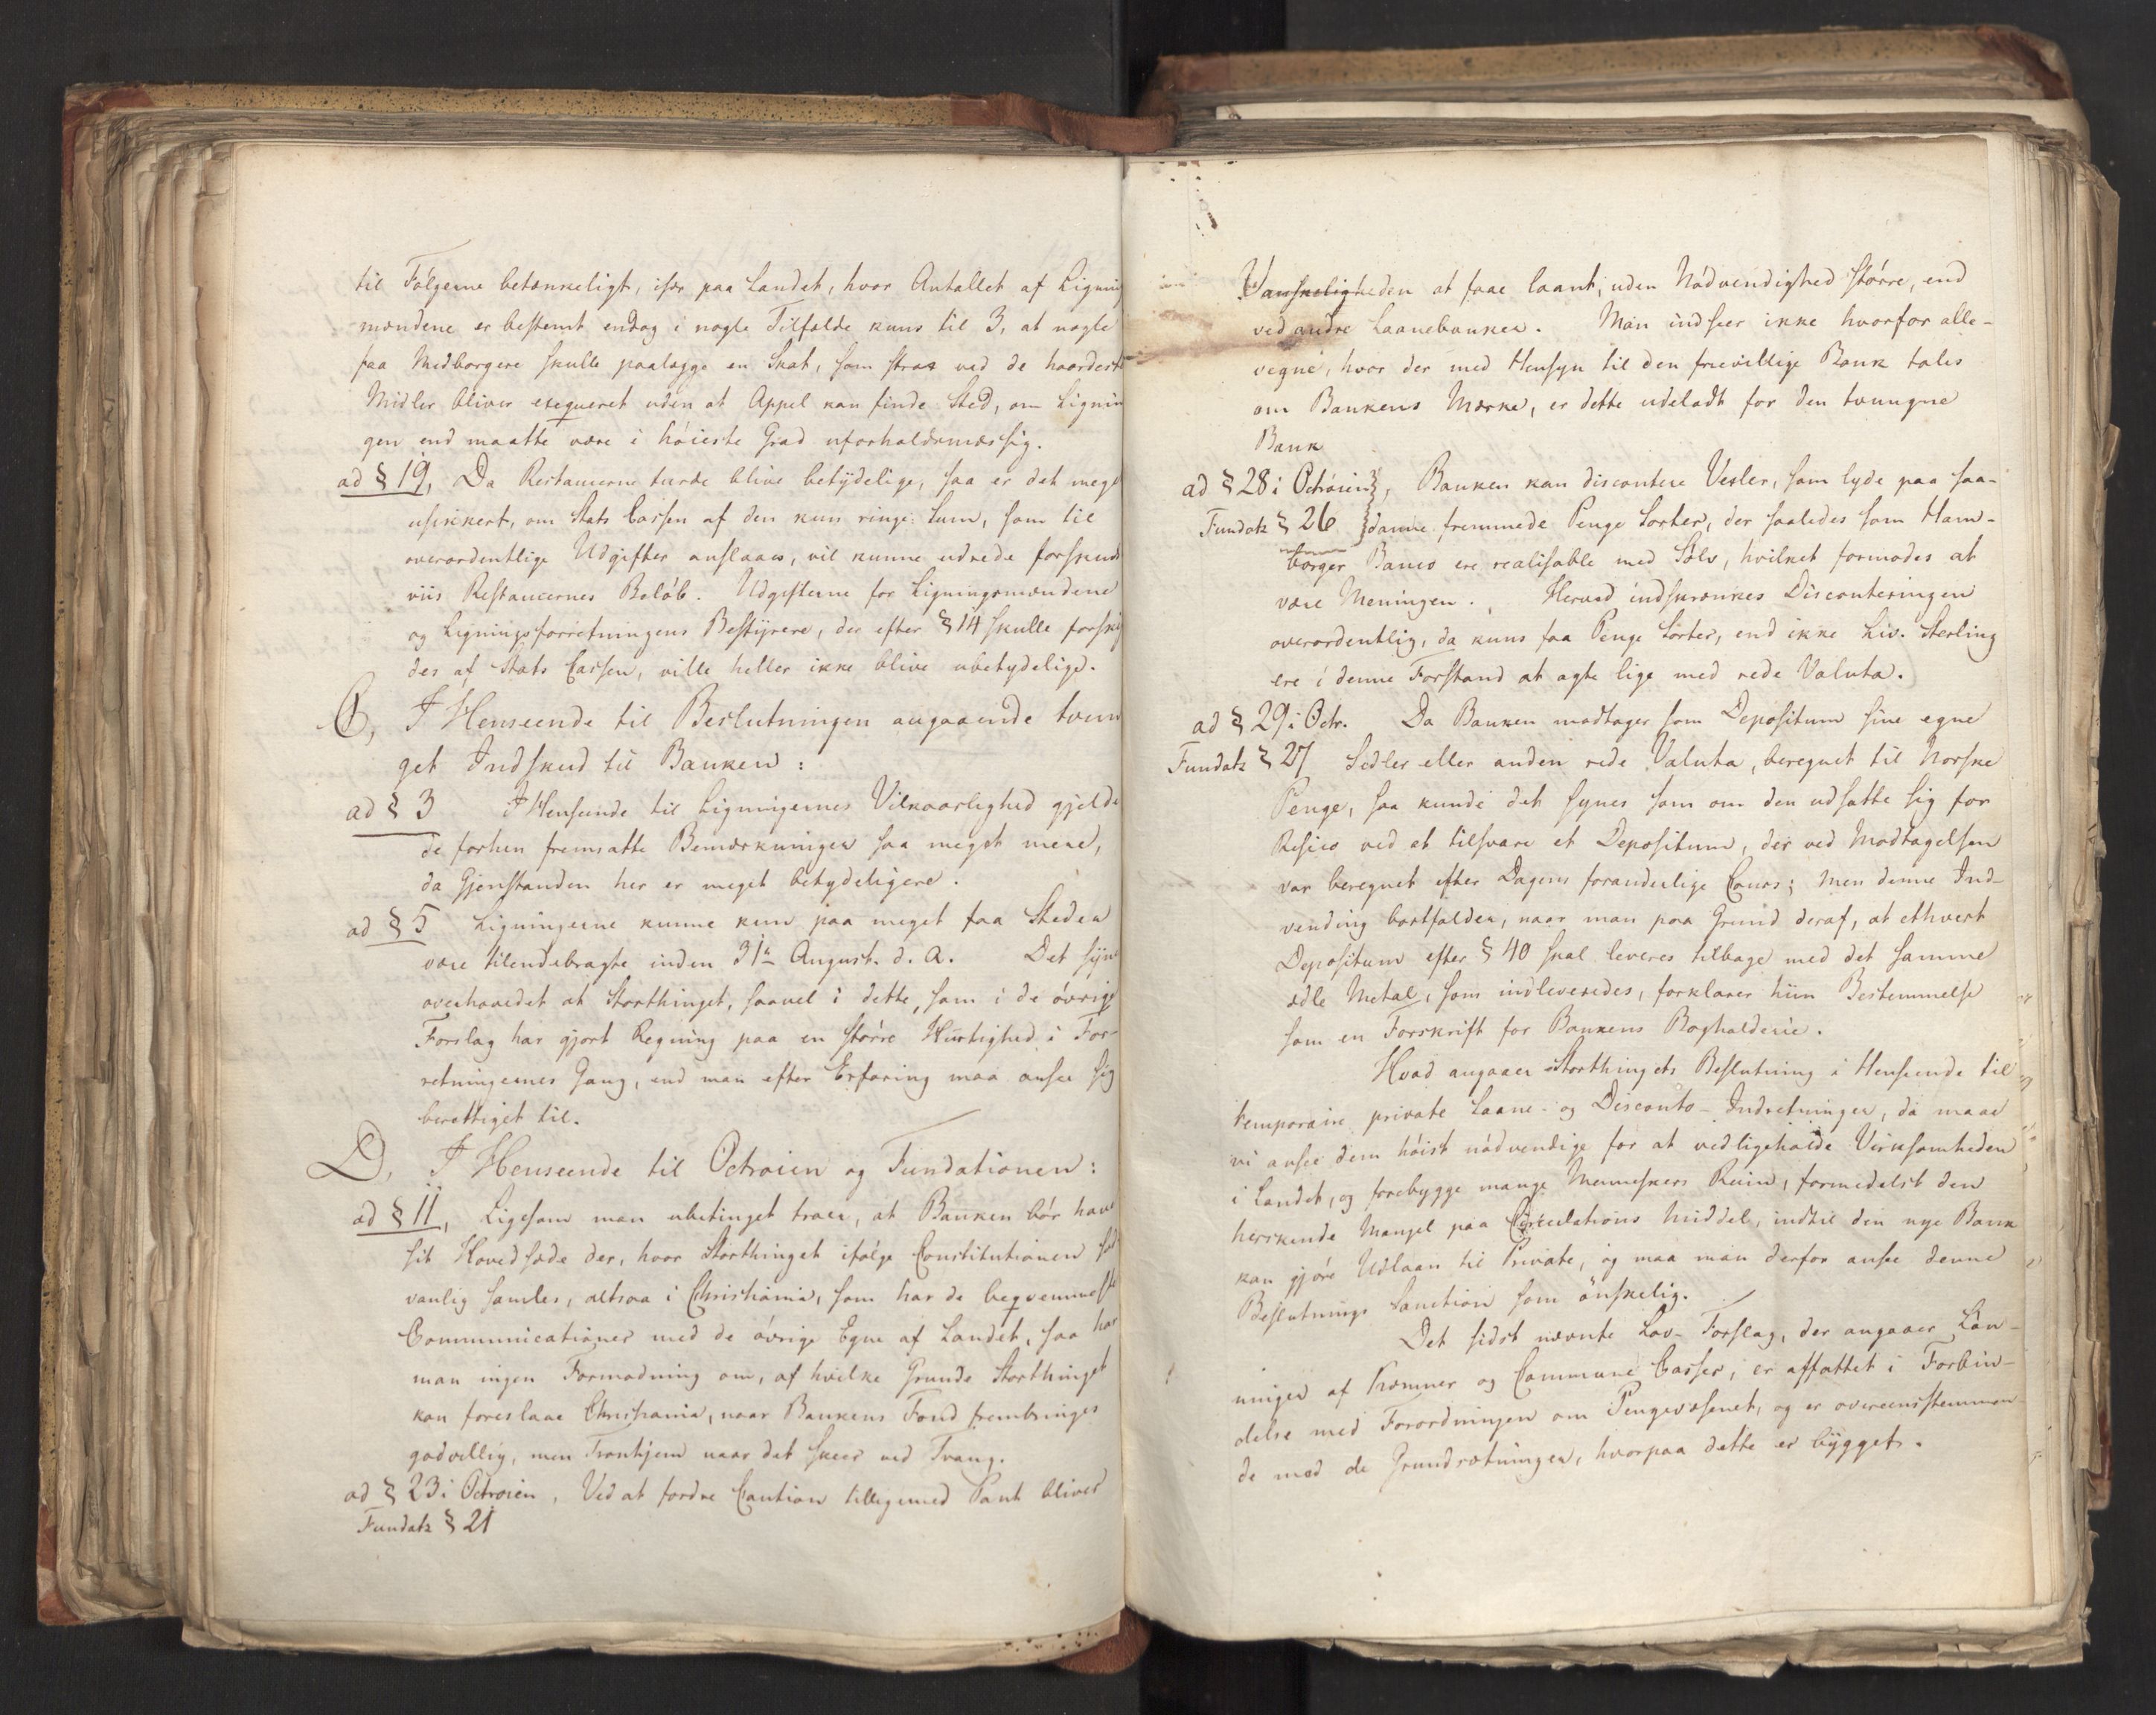 til Følgerne betænkeligt, især paa Landet, hvor Antallet af Ligning
mændene er bestemt endog i nogle Tilfælde kuns til 3, at nogle
faa Medborgere skulle paalægge en Skat, som strax ved de haardeste
Midler bliver exeqveret uden at Appel kan finde Sted, om Lignin
gen end maatte være i høieste Grad uforholdsmæssig.
ad § 19, Da Restancerne turde blive betydelige, saa er det meget
usikkert, om Stats Cassen af den kun ringe Sum, som til
overordentlige Udgifter anslaaes, vil kunne udrede forskuds
viis Restancernes Beløb. Udgifterne for Ligningsmændene
og Ligningsforretningens Bestyrere, der efter § 14 skulle forsky
des af Stats Cassen, ville heller ikke blive ubetydelige.
C, I Henseende til Beslutningen angaaende tvun
get Indskud til Banken:
ad § 3 I Henseende til Ligningernes Vilkaarlighed gjelde
de forhen fremsatte Bemærkninger saa meget mere,
da Gjenstanden her er meget betydeligere.
ad § 5 Ligningerne kunne kun paa meget faa Steder
være tilendebragte inden 31te August. d. A. Det synes
overhovedet at Storthinget, saavel i dette, som i de øvrige
Forslag har gjort Regning paa en større Hurtighed i For-
retningernes Gang, end man efter Erfaring maa ansee sig
berettiget til.
D, I Henseende til Octroien og Fundationen:
ad § 11, Ligesom man ubetinget troer, at Banken bør have
sit Hovedsæde der, hvor Storthinget ifølge Constitutionen sæd
vanlig samles, altsaa i Christiania, som har de beqvemmeste
Communicationer med de øvrige Egne af Landet, saa har
man ingen Formodning om, af hvilke Grunde Storthinget
kan foreslaae Christiania, naar Bankens Fond frembringes
godvillig, men Tronhjem naar det skeer ved Tvang.
ad § 23 i Octroien, Ved at fordre Caution tilligemed Pant bliver
Fundats § 21
Vanskeligheden at faae laant, uden Nødvendighed større, end
ved andre Laanebanker. Man indseer ikke hvorfor alle-
vegne, hvor der med Hensyn til den frievillige Bank tales
om Bankens Mærke, er dette udeladt for den tvungne
Bank
ad § 28 i Octroien, Banken kan discontere Vexler, som lyde paa saa-
Fundats § 26 danne fremmede Penge Sorter, der saaledes som Ham-
borger Banco ere realisable med Sølv, hvilket formodes at
være Meningen. Herved indskrænkes Disconteringen
overordentlig, da kuns faa Penge Sorter, end ikke Liv. Sterling
ere i denne Forstand at agte lige med rede Valuta.
ad § 29 i Octr. Da Banken modtager som Depositum sine egne
Fundats § 27 Sedler eller anden rede Valuta, beregnet til Norske
Penge, saa kunde det synes som om den udsatte sig for
Risico ved at tilsvare et Depositum, der ved Modtagelsen
var beregnet efter Dagens foranderlige Cours; Men denne Ind-
vending bortfalder, naar man paa Grund deraf, at ethvert
Depositum efter § 40 skal leveres tilbage med det samme
ædle Metal, som indleveredes, forklarer hiin Bestemmelse
som en Forskrift for Bankens Bogholderie.
Hvad angaaer Storthingets Beslutning i Henseende til
temporaire private Laane- og Disconto-Indretninger, da maae
vi ansee dem høist nødvendige for at vedligeholde Virksomheden
i Landet, og forebygge mange Menneskers Ruin, formedelst den
herskende Mangel paa Circulations Middel, indtil den nye Bank
kan gjøre Udlaan til Private, og maa man derfor ansee denne
Beslutnings Sanction som ønskelig.
Det sidst nævnte Lov-Forslag, der angaaer Løn-
ninger af og Commune Casser, er affattet i Forbin-
delse med Forordningen om Pengevæsenet, og er overeensstemmen-
de med de Grundsætninger, hvorpaa dette er bygget.